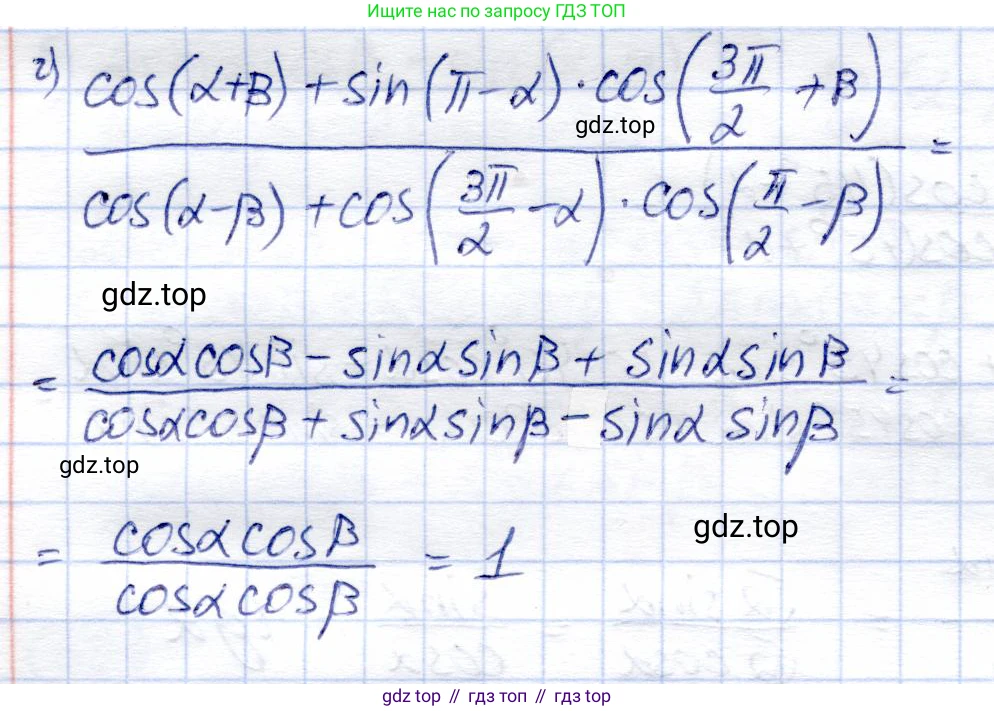 Ищите нас по запросу ГДЗ ТОП
г) cos(α+β) + sin(π-α)·cos(3π/2 +β)
gdz.top
=
cos(α-β) + cos(3π/2 -α)·cos(π/2 -β)
gdz.top
= cosα cosβ - sinα sinβ + sinα sinβ =
cosα cosβ + sinα sinβ - sinα sinβ
gdz.top
= cosα cosβ = 1
gdz.top
cosα cosβ
gdz top // гдз топ // гдз top